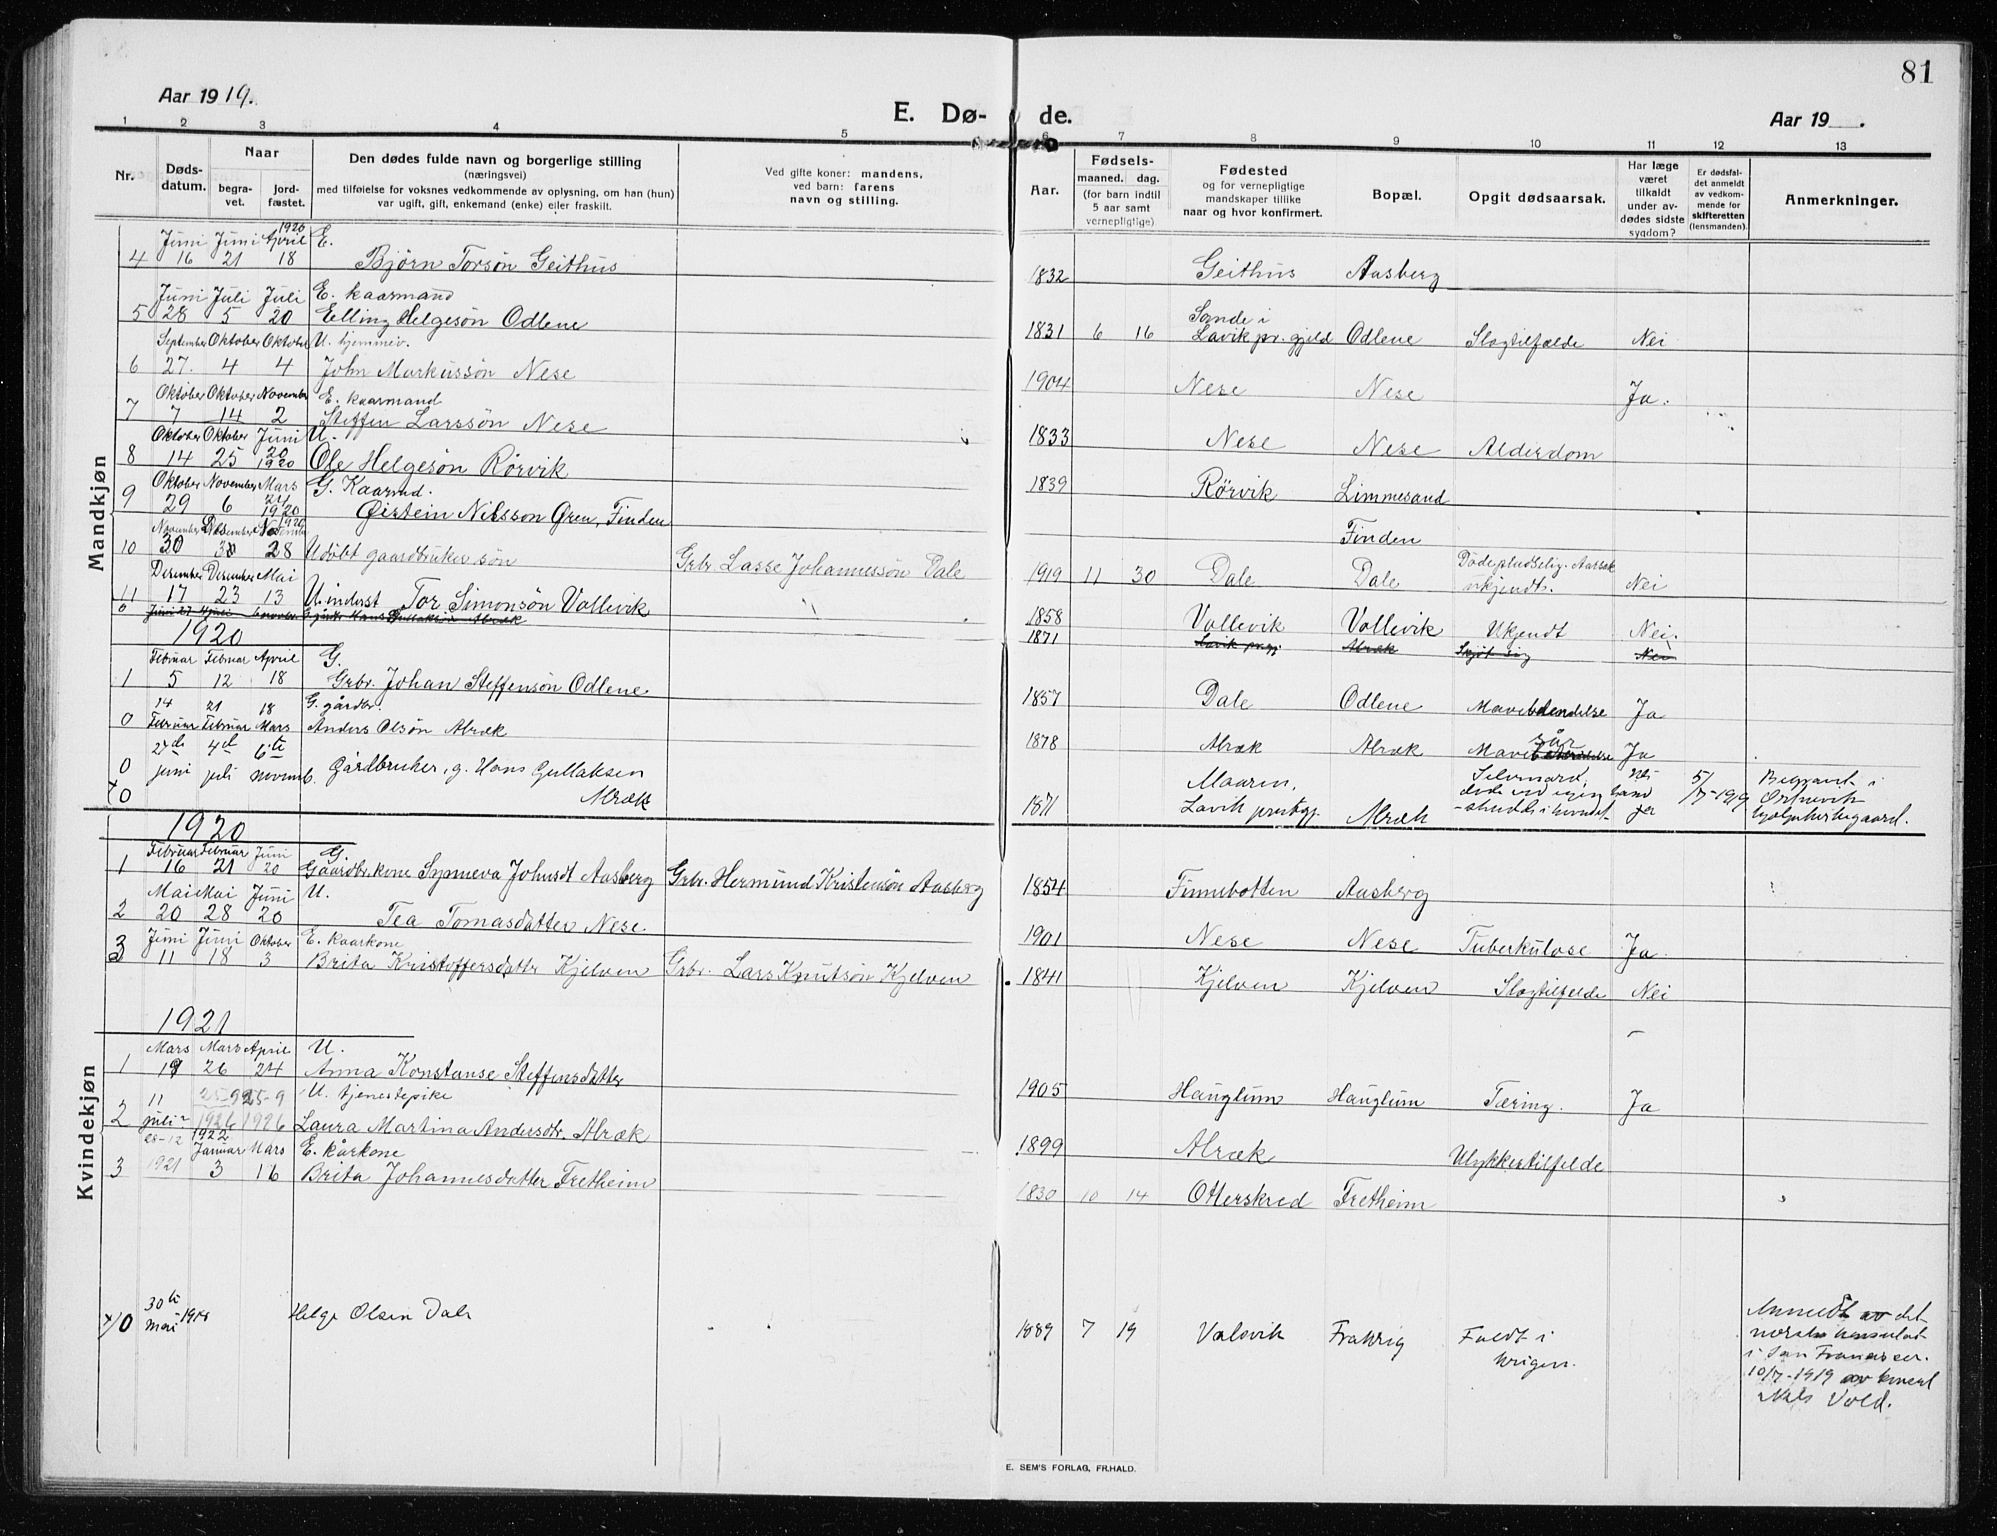 81
Aar 1919.
E. Dø- de.
Aar 19 .
1 2 3 4 5 6 7 8 9 10 11 12 13
Nr.
Døds-
datum.
Naar
begra-
vet.
jord-
fæstet.
Den dødes fulde navn og borgerlige stilling
(næringsvei)
med tilføielse for voksnes vedkommende av oplysning, om han (hun)
var ugift, gift, enkemand (enke) eller fraskilt.
Ved gifte koner: mandens,
ved barn: farens
navn og stilling.
Aar.
Fødsels-
maaned. dag.
(for barn indtil
5 aar samt
vernepligtige)
Fødested
og for vernepligtige
mandskaper tillike
naar og hvor konfirmert.
Bopæl.
Opgit dødsaarsak.
Har læge
været
tilkaldt
under av-
dødes sidste
sygdom?
Er dødsfal-
det anmeldt
av vedkom-
mende for
skifteretten
(lensmanden).
Anmerkninger.
Mandkjøn
Juni Juni April 1920 E.
4 16 21 18 Bjørn Torsøn Geithus 1832 Geithus Aasberg
Juni Juli Juli E. kaarmand
5 28 5 20 Elling Helgesøn Odlene 1831 6 16 Sande i
Lavik pr. gjeld Odlene Slagtilfælde Nei
September Oktober Oktober U. hjemmev.
6 27. 4 4 John Markussøn Nese 1904 Nese Nese Ja.
Oktober Oktober November E. kaarmand
7 7 14 2 Steffen Larssøn Nese 1833 Nese Nese Alderdom
Oktober Oktober Juni U.
8 14 25 20 1920 Ole Helgesøn Rørvik 1839 Rørvik Limmesand
Oktober November Mars G. Kaarmd.
9 29 6 21 1920 Øistein Nilsson Øren, Finden Finden
November Desember 1920
10 30 28 Udøbt gaardbruker søn Grbr. Lasse Johannessøn Dale 1919 11 30 Dale Dale Døde pludselig. Aarsak
ukjendt. Nei
Desember Desember Mai
11 17 23 13 U. inderst Tor Simonsøn Vollevik 1858 Vollevik Vollevik Ukjendt Nei.
0 Juni 27 4 juli 6 novbr. G. gårdbr. Hans Gullaksen Alræk 1871 Lavik prgj Alræk Skjøt sig Nei
1920
Februar Februar April G.
1 5 12 18 Grbr. Johan Steffensøn Odlene 1857 Dale Odlene Ja
14 21 18 G. gårdbr.
0 Februar Februar Mars Anders Olsøn Alræk 1878 Alræk Alræk Mavesår Ja
27de 4de 6te
0 juni juli novemb. Gårdbruker, g. Hans Gullaksen
Alræk 1871 Maaren,
Lavik prestgj. Alræk Selvmord,
døde ved egen haand
-skudd i hovedet Nei 5/7-1919 Begravet i
Ortnevik
hjelpekirkegaard.
Kvindekjøn
1920
Februar Februar Juni G.
1 16 21 20 Gaardbr. kone Synneva Johnsdt Aasberg Grbr. Hermund Kristensøn Aasberg 1854 Finnebotten Aasberg
Mai Mai Juni U.
2 20 28 20 Tea Tomasdatter Nese 1901 Nese Nese Tuberkulose Ja.
Juni Juni Oktober E. kaarkone
3 11 18 3 Brita Kristoffersdattr Kjelven Grbr. Lars Knutsøn Kjelven 1841 Kjelven Kjelven Slagtilfelde Nei
1921
Mars Mars April U.
1 19 26 24 Anna Konstanse Steffensdatter 1905 Hauglum Hauglum Tæring. Ja
11 25-9 25-9 U. tjenestepike
2 juli 1926 1926 Laura Martina Andersdtr. Alræk 1899 Alræk Ulykkestilfelde
28-12 1922 Januar Mars E. kårkone
3 1921 3 16 Brita Johannesdatter Fretheim 1830 10 14 Otterskred Fretheim
0 30te
mai 1918 Helge Olsen Dale 1889 7 19 Valsvik Frankrig Faldt i
krigen. Anmeldt av det
norske konsulat
i San Francisco.
10/7-1919 av konsul
Nils Vold.
E. SEM'S FORLAG, FR.HALD.